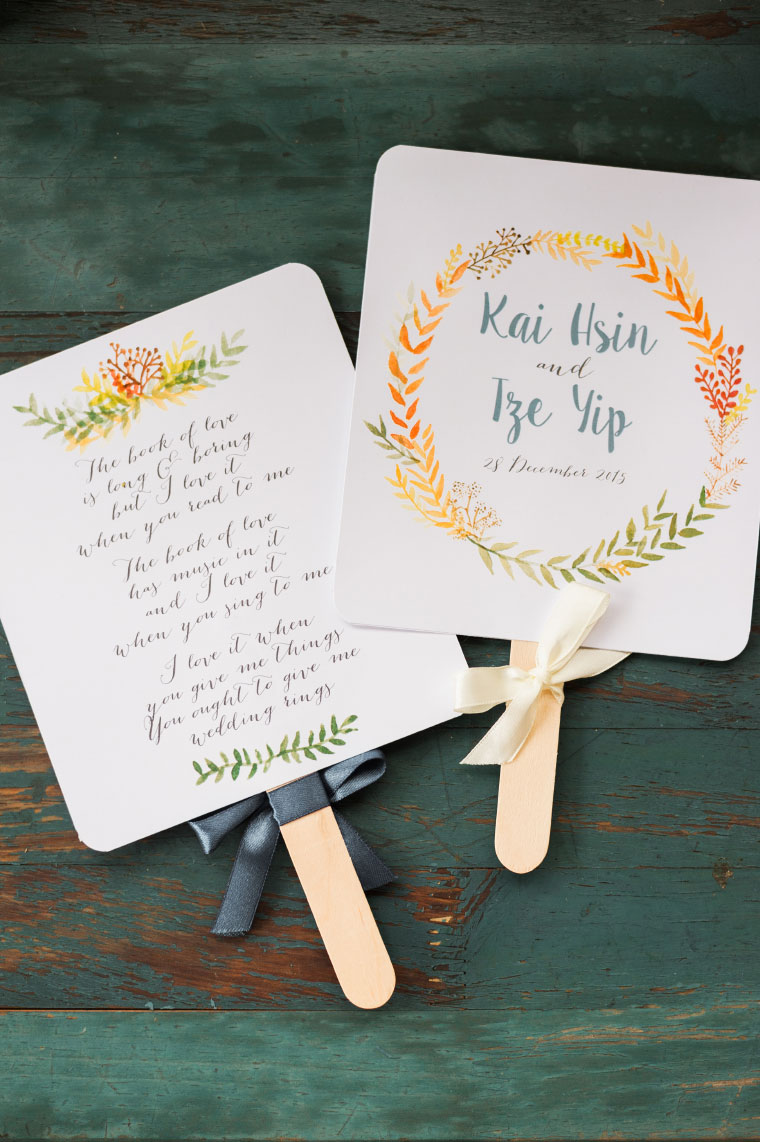 The book of love
is long & boring
but I love it
when you read to me
The book of love
has music in it
and I love it
when you sing to me
I love it when
you give me things
You ought to give me
wedding rings
Kai Hsin
and
Tze Yip
28 December 2015